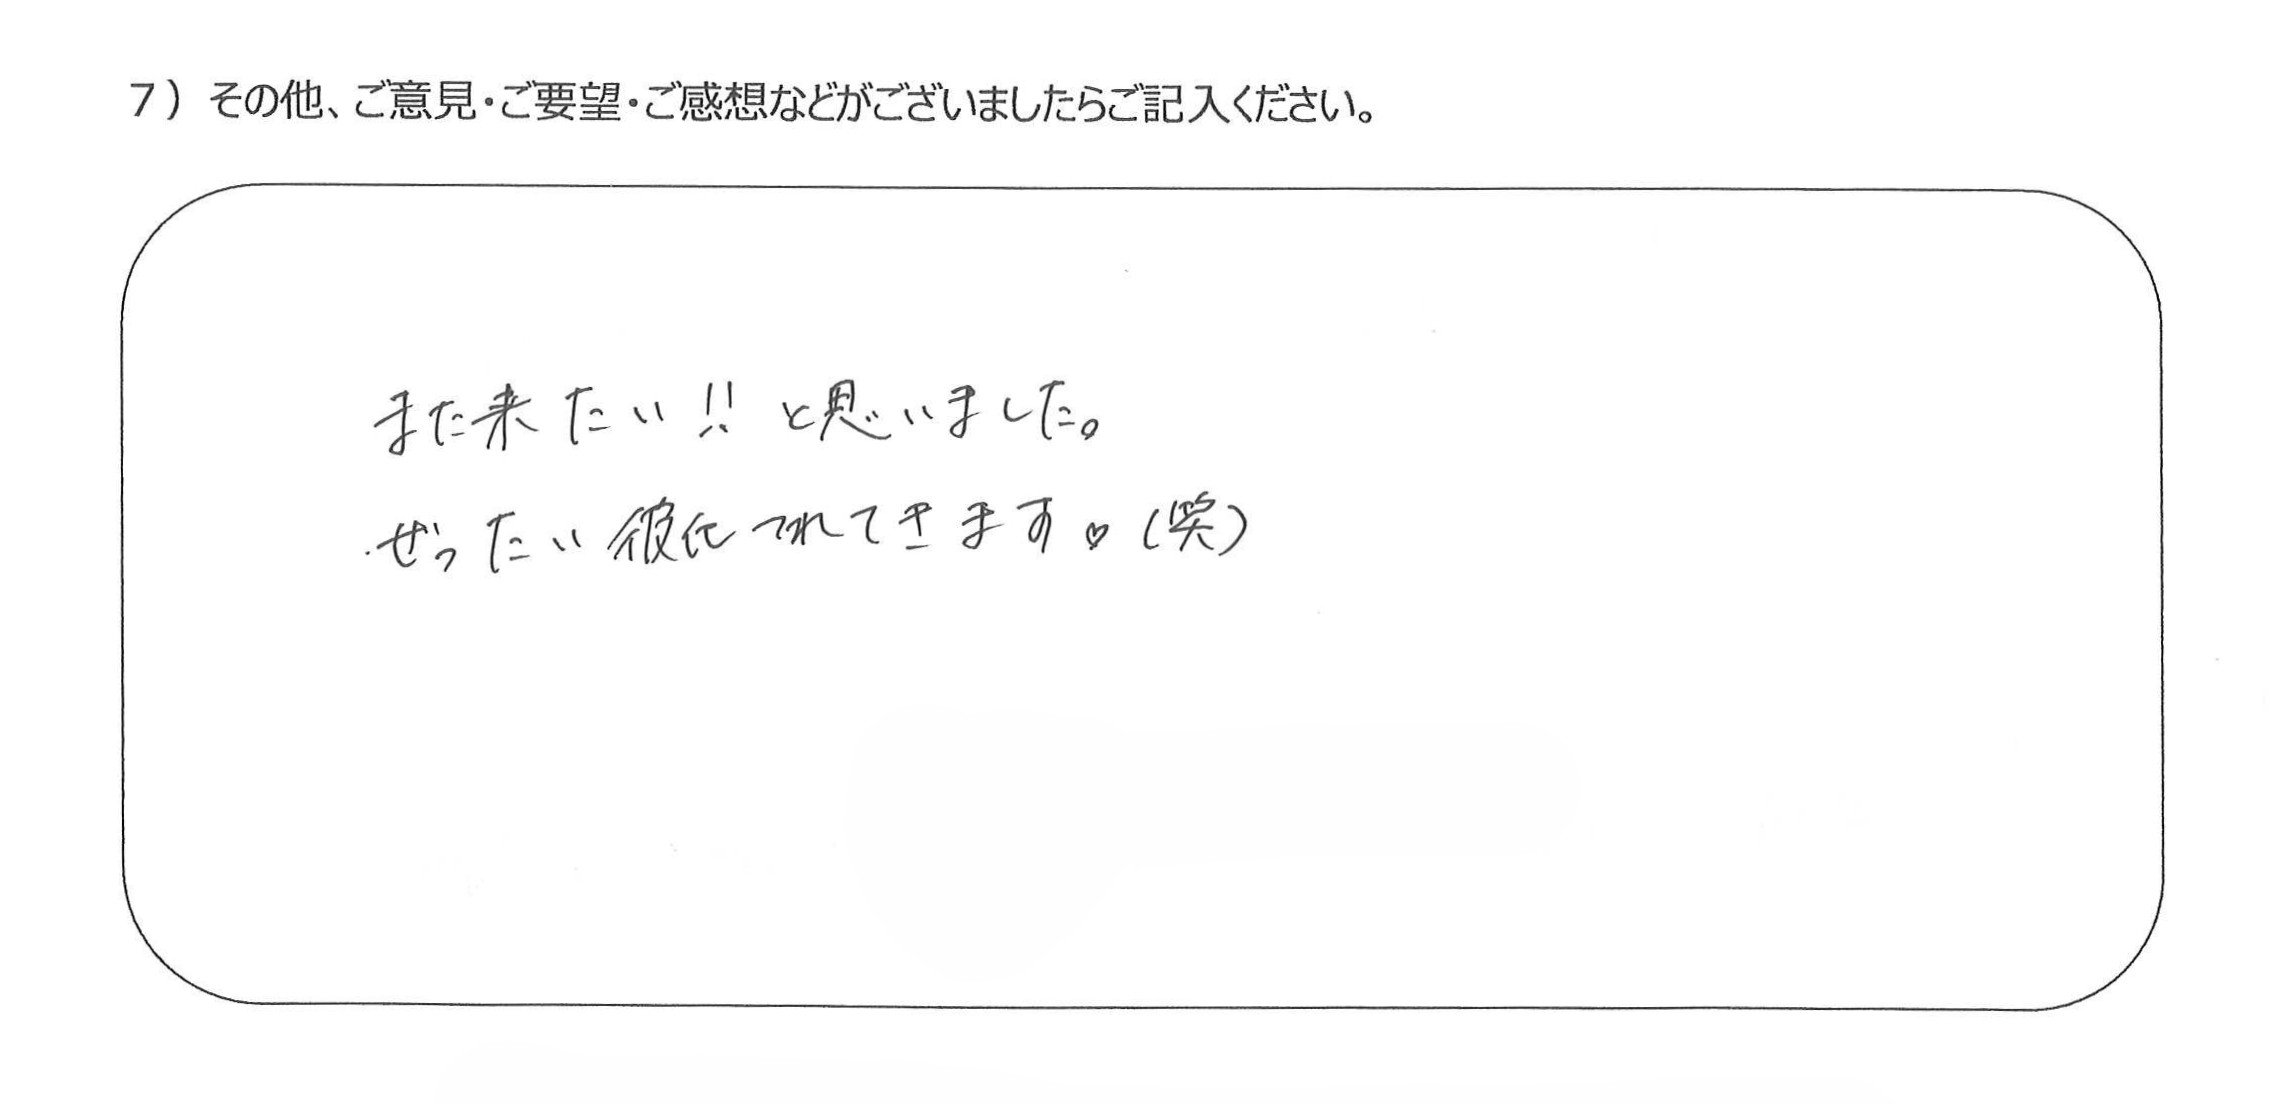 7）その他、ご意見・ご要望・ご感想などがございましたらご記入ください。
また来たい!!と思いました。
ぜったい彼氏つれてきます♡(笑)